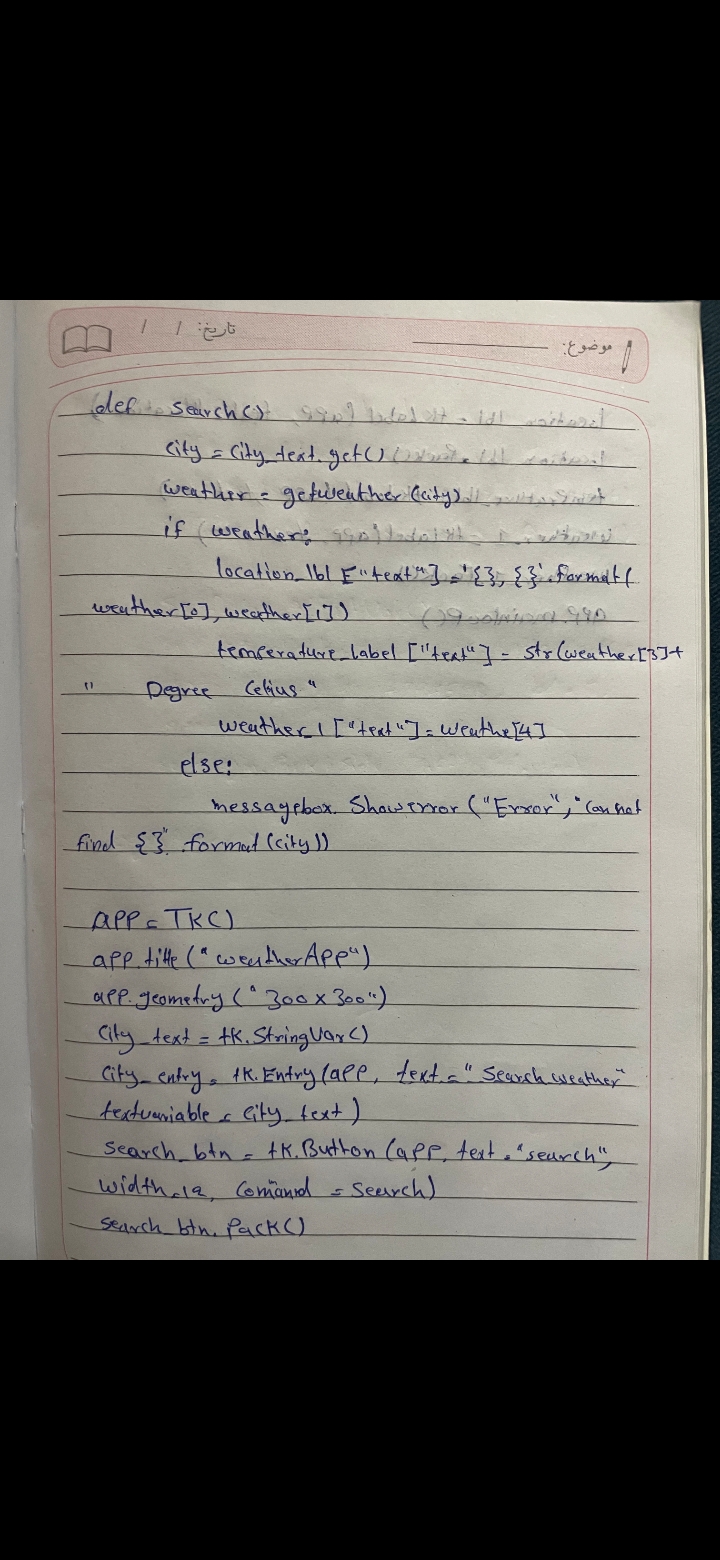 موضوع: تاریخ: / /
def search()
city = city_text.get()
weather = getweather(city)
if weather:
location_lbl ["text"] = '{}, {}'.format(
weather[0], weather[1])
temperature_label ["text"] = str(weather[3]+
" Degree Celius"
weather_l ["text"] = weathe[4]
else:
messagebox. Showerror ("Error", "Can not
find {}".format(city))
app = TK()
app.title ("weatherApp")
app.geometry ("300x300")
City_text = tk.StringVar()
City_entry = tk.Entry(app, text = "Search weather"
textvariable = City_text)
Search_btn = tk.Button (app, text = "search",
width = 12, Comannd = search)
Search_btn.pack()